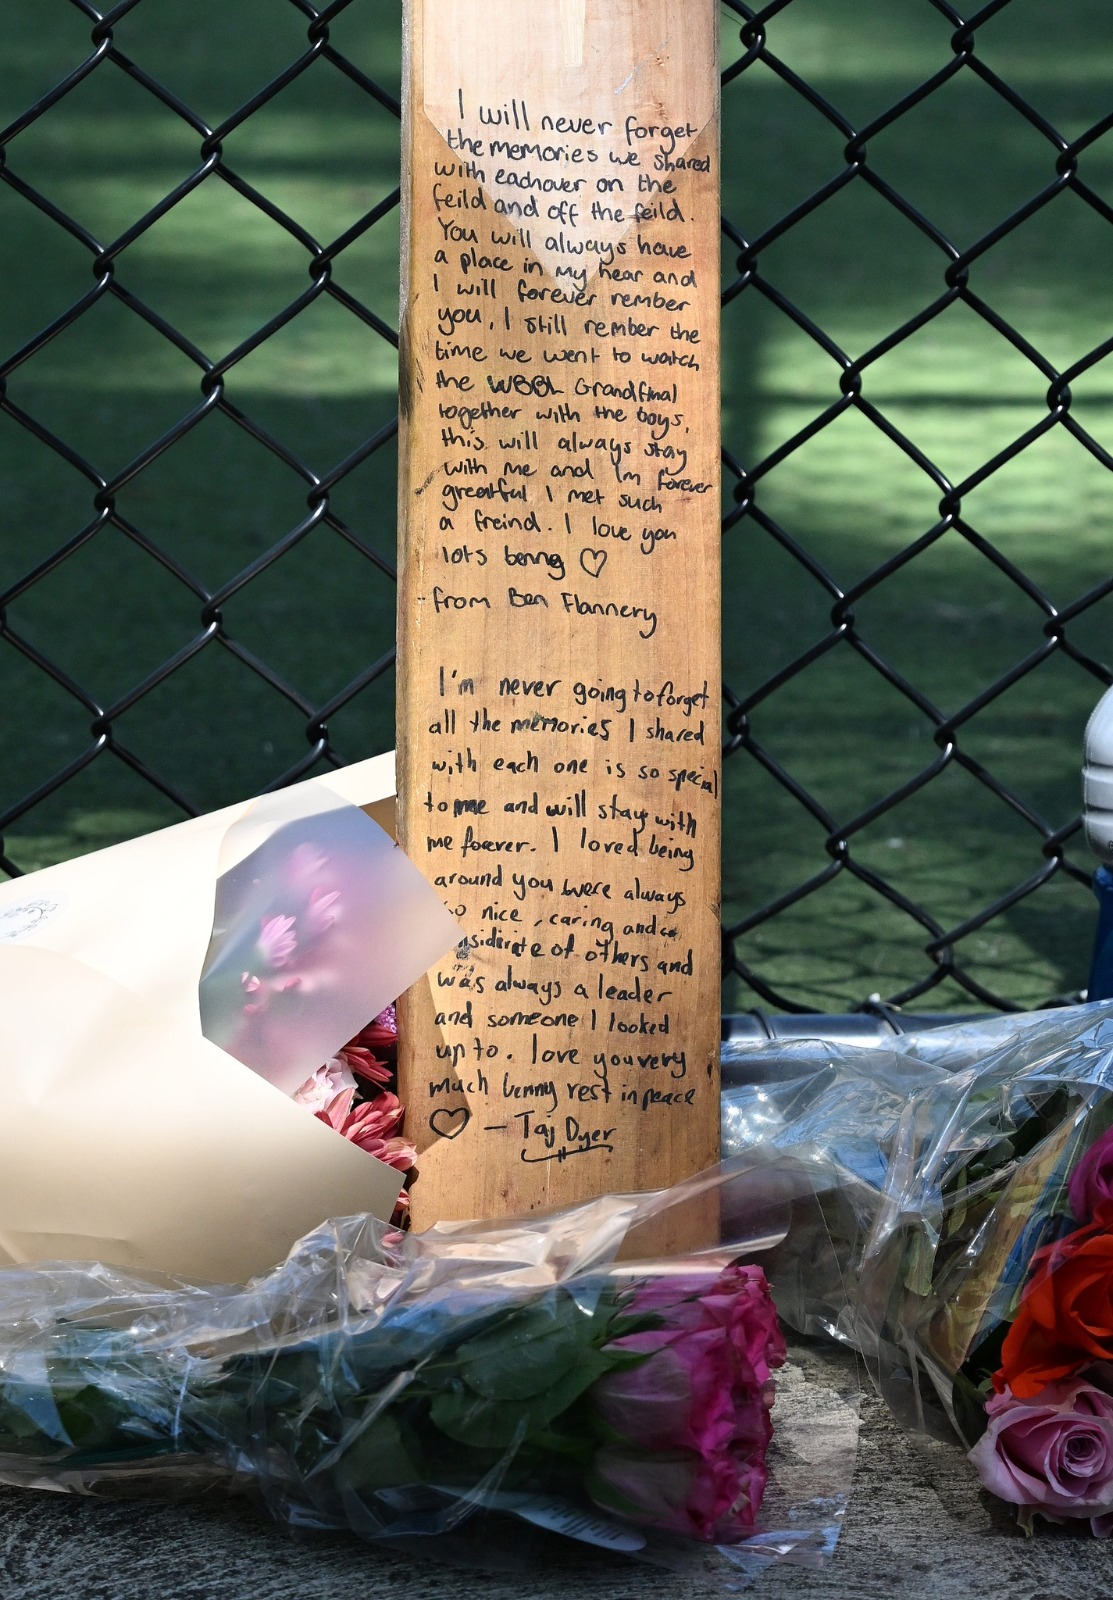 I will never forget
the memories we shared
with eachover on the
feild and off the feild.
You will always have
a place in my hear and
I will forever rember
you, I still rember the
time we went to watch
the WBBL Grandfinal
together with the boys,
this will always stay
with me and Im forever
greatful I met such
a freind. I love you
lots benng ♡
from Ben Flannery
I'm never going to forget
all the memories I shared
with each one is so special
to me and will stay with
me forever. I loved being
around you were always
so nice, caring and
insidirite of others and
was always a leader
and someone I looked
up to. love you very
much benny rest in peace
♡ — Taj Dyer